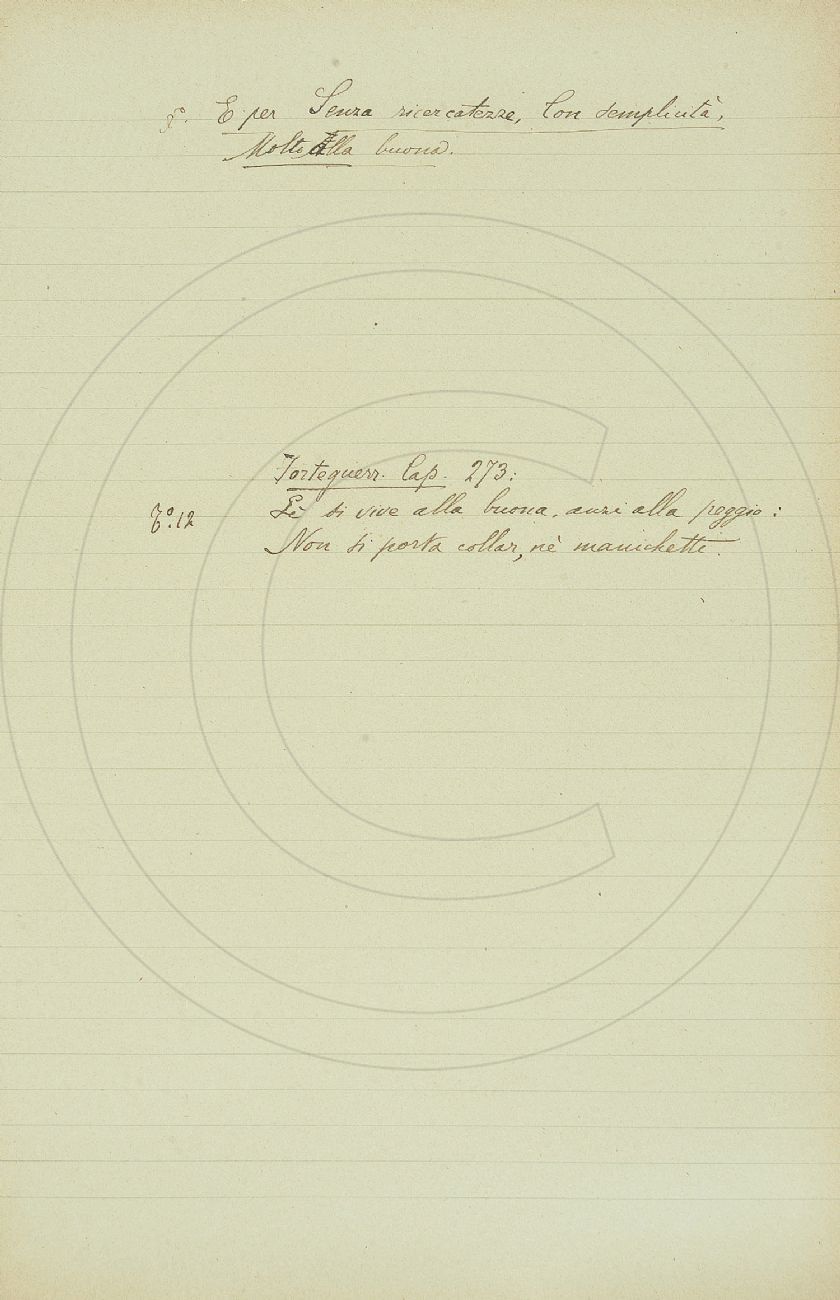 E per Senza ricercatezze, Con semplicità,
Molto alla buona.
Forteguerr. Cap. 273:
Lì si vive alla buona, anzi alla peggio:
T.° 12
Non si porta collar, nè manichetti.